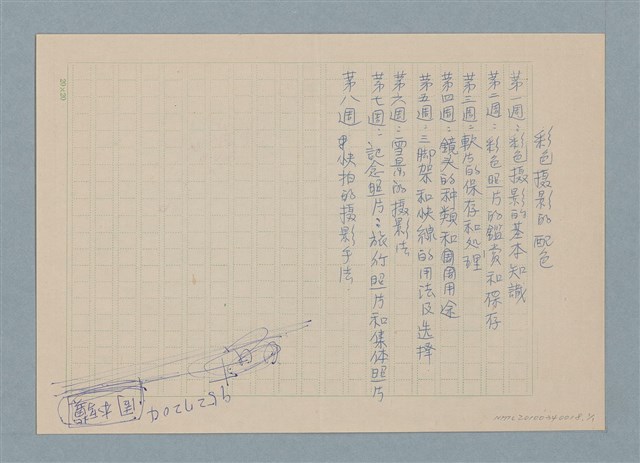 彩色攝影的配色
第一週：彩色攝影的基本知識
第二週：彩色照片的鑑賞和保存
第三週：軟片的保存和処理
第四周：鏡头的种類和用途
第五週：三脚架和快線的用法及选择
第六週：雪景的攝影法
第七週：記念照片：旅行照片和集体照片
第八週 快拍的攝影手法
9527204